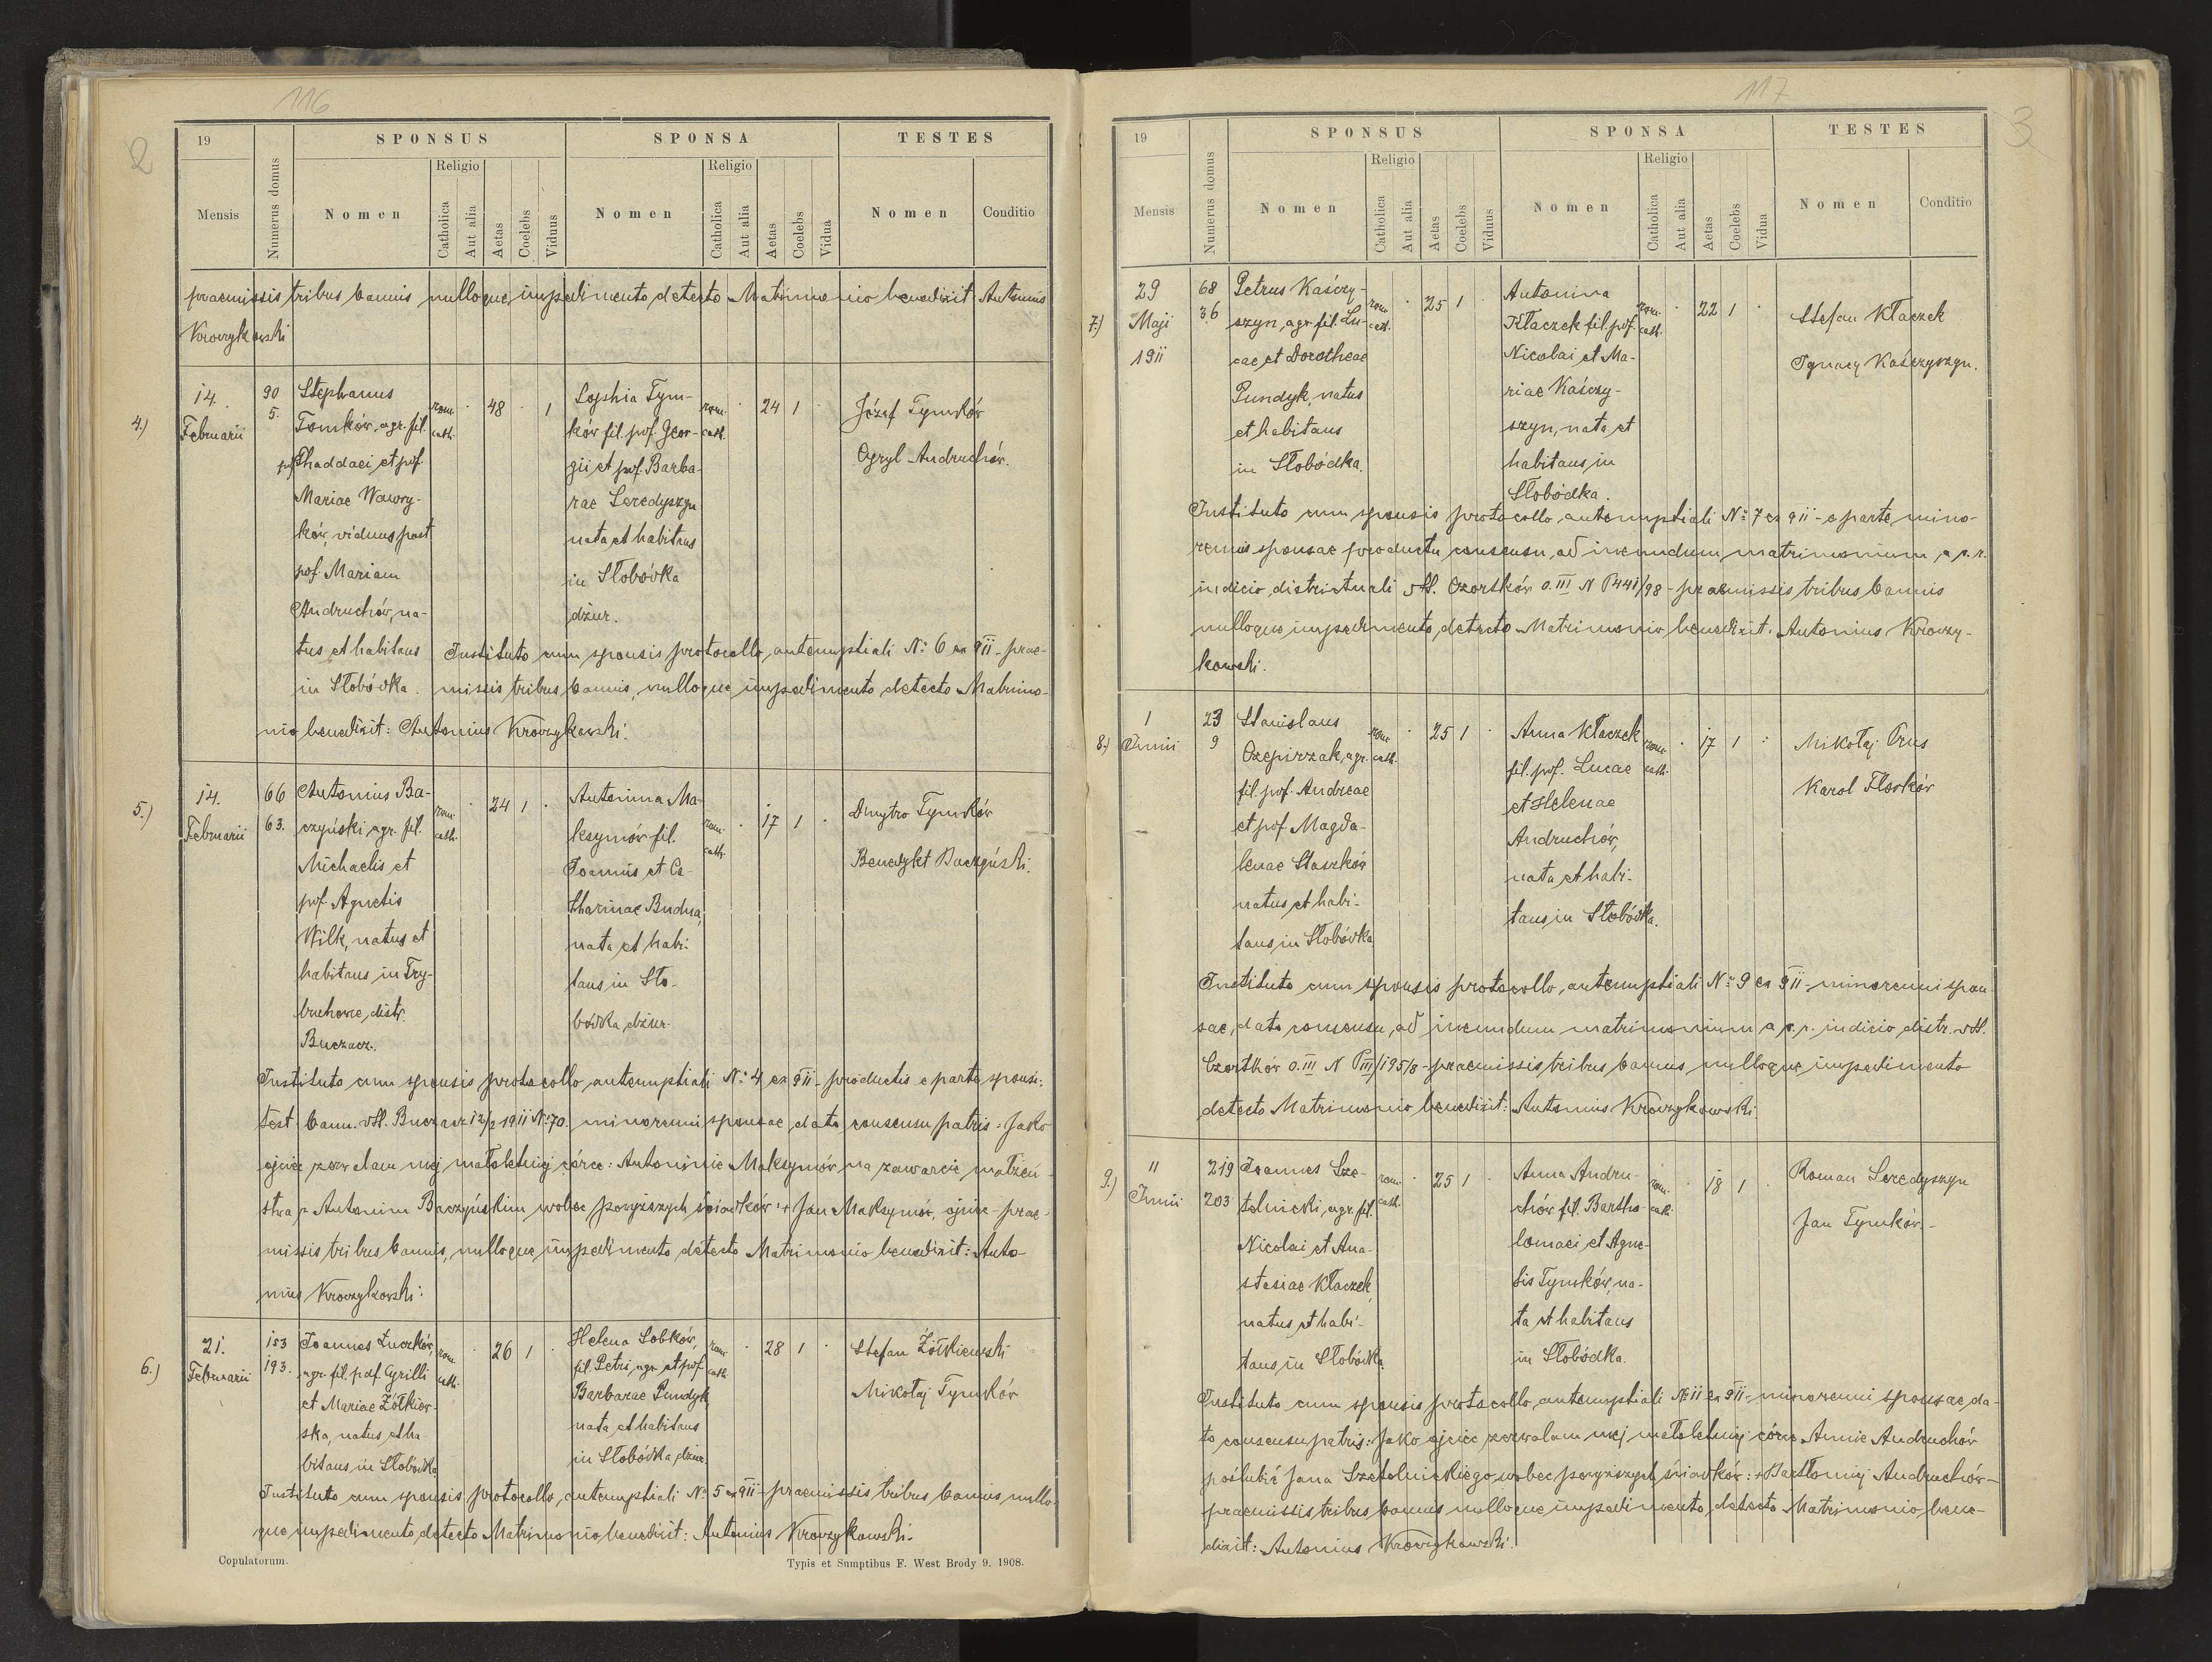 116
2
19
SPONSUS
SPONSA
TESTES
Mensis
Numerus domus
Nomen
Religio
Catholica
Aut alia
Aetas
Coelebs
Viduus
Nomen
Religio
Catholica
Aut alia
Aetas
Coelebs
Vidua
Nomen
Conditio
praemissis tribus bannis nulloque impedimento detecto Matrimonio benedixit Antonius
Krovzykowski
4.)
14.
Februarii
90
5.
Stephanus
Tomków, agr. fil.
pof. Thaddaei et pof.
Mariae Wawry-
ków, viduus post
pof. Mariam
Andruchów, na-
tus et habitans
in Słobódka.
rom.
cath.
48
1
Sophia Tym-
ków fil. pof. Geor-
gii et pof. Barba-
rae Seredyszyn
nata et habitans
in Słobódka
dżur.
rom.
cath.
24 1
Józef Tymków
Cyryl Andruchów.
Instituto cum sponsis protocollo antenuptiali No: 6 ex 911 - prae-
missis tribus bannis, nulloque impedimento detecto Matrimo-
nio benedixit: Antonius Krovzykowski.
5.)
14.
Februarii
66
63.
Antonius Ba-
czyński agr. fil.
Michaelis et
pof. Agnetis
Wilk, natus et
habitans in Try-
buchowce, distr.
Buczacz.
rom.
cath.
24 1
Antonina Ma-
ksymów fil.
Joannis et Ca-
tharinae Budna,
nata et habi-
tans in Sło-
bódka, dżur.
rom.
cath.
17 1
Dmytro Tymków
Benedykt Baczyński.
Instituto cum sponsis protocollo antenuptiali No: 4 ex 911 - productis e parte sponsi:
test. bann. dtt. Buczacz 12/2 1911 No: 70. minorenni sponsae dato consensu patris: Jako
ojciec zezwalam mej małoletniej córce: Antoninie Maksymów na zawarcie małżeń-
stwa z Antonim Baczyńskim wobec powyższych świadków: + Jan Maksymów, ojciec - prae-
missis tribus bannis, nulloque impedimento detecto Matrimonio benedixit: Anto-
nius Krovzykowski:
6.)
21.
Februarii
153
193.
Joannes Zuczków,
agr. fil. pof. Cyrilli
et Mariae Żółkiew-
ska, natus et ha-
bitans in Słobódka
rom.
cath.
26 1
Helena Sobków,
fil. Petri, agr. et pof.
Barbarae Pundyk
nata et habitans
in Słobódka, dżur.
rom.
cath.
28 1
Stefan Żółkiewski
Mikołaj Tymków
Instituto cum sponsis protocollo, antenuptiali No: 5 ex 911 - praemissis tribus bannis nullo-
que impedimento detecto Matrimonio benedixit: Antonius Krovzykowski.
Copulatorum.
Typis et Sumptibus F. West Brody 9. 1908.
117
3
19
SPONSUS
SPONSA
TESTES
Mensis
Numerus domus
Nomen
Religio
Catholica
Aut alia
Aetas
Coelebs
Viduus
Nomen
Religio
Catholica
Aut alia
Aetas
Coelebs
Vidua
Nomen
Conditio
7.)
29
Maji
1911
68
36
Petrus Kaśczy-
szyn, agr. fil. Lu-
cae et Dorotheae
Pundyk, natus
et habitans
in Słobódka.
rom.
cath.
25 1
Antonina
Kłaczek fil. pof.
Nicolai et Ma-
riae Kaśczy-
szyn, nata et
habitans in
Słobódka.
rom.
cath.
22 1
Stefan Kłaczek
Ignacy Kaśczyszyn.
Instituto cum sponsis protocollo, antenuptiali No: 7 ex 911 - e parte mino-
rennis sponsae productu consensu, ad ineundum matrimonium a c. r.
iudicio districtuali dtt. Czortków O. III N P 441/98 - praemissis tribus bannis
nulloque impedimento, detecto Matrimonio benedixit. Antonius Krovzy-
kowski.
8.)
1
Junii
23
9
Stanislaus
Czepirzak, agr.
fil. pof. Andreae
et pof. Magda-
lenae Staszków
natus et habi-
tans in Słobódka
rom.
cath.
25 1
Anna Kłaczek
fil. pof. Lucae
et Helenae
Andruchów,
nata et habi-
tans in Słobódka.
rom.
cath.
17 1
Mikołaj Prus
Karol Floskór
Instituto cum sponsis protocollo, antenuptiali No: 9 ex 911 - minorenni spon-
sae, dato consensu, ad ineundum matrimonium a c. r. iudicio distr. dtt.
Czortków O. III N P III/195/8 - praemissis tribus bannis, nulloque impedimento
detecto Matrimonio benedixit: Antonius Krovzykowski.
9.)
11
Junii
219
203
Joannes Sze-
telnicki, agr. fil.
Nicolai et Ana-
stasiae Kłaczek
natus et habi-
tans in Słobódka.
rom.
cath.
25 1
Anna Andru-
chów fil. Bartho-
lomaei et Agne-
tis Tymków, na-
ta et habitans
in Słobódka.
rom.
cath.
18 1
Roman Seredyszyn
Jan Tymków. -
Instituto cum sponsis protocollo, antenuptiali No 11 ex 911 - minorenni sponsae da-
to consensu patris: Jako ojciec zezwalam mej małoletniej córce Annie Andruchów
poślubić Jana Szetelnickiego wobec powyższych świadków: + Bartłomiej Andruchów -
praemissis tribus bannis nulloque impedimento, detecto Matrimonio bene-
dixit: Antonius Krovzykowski.